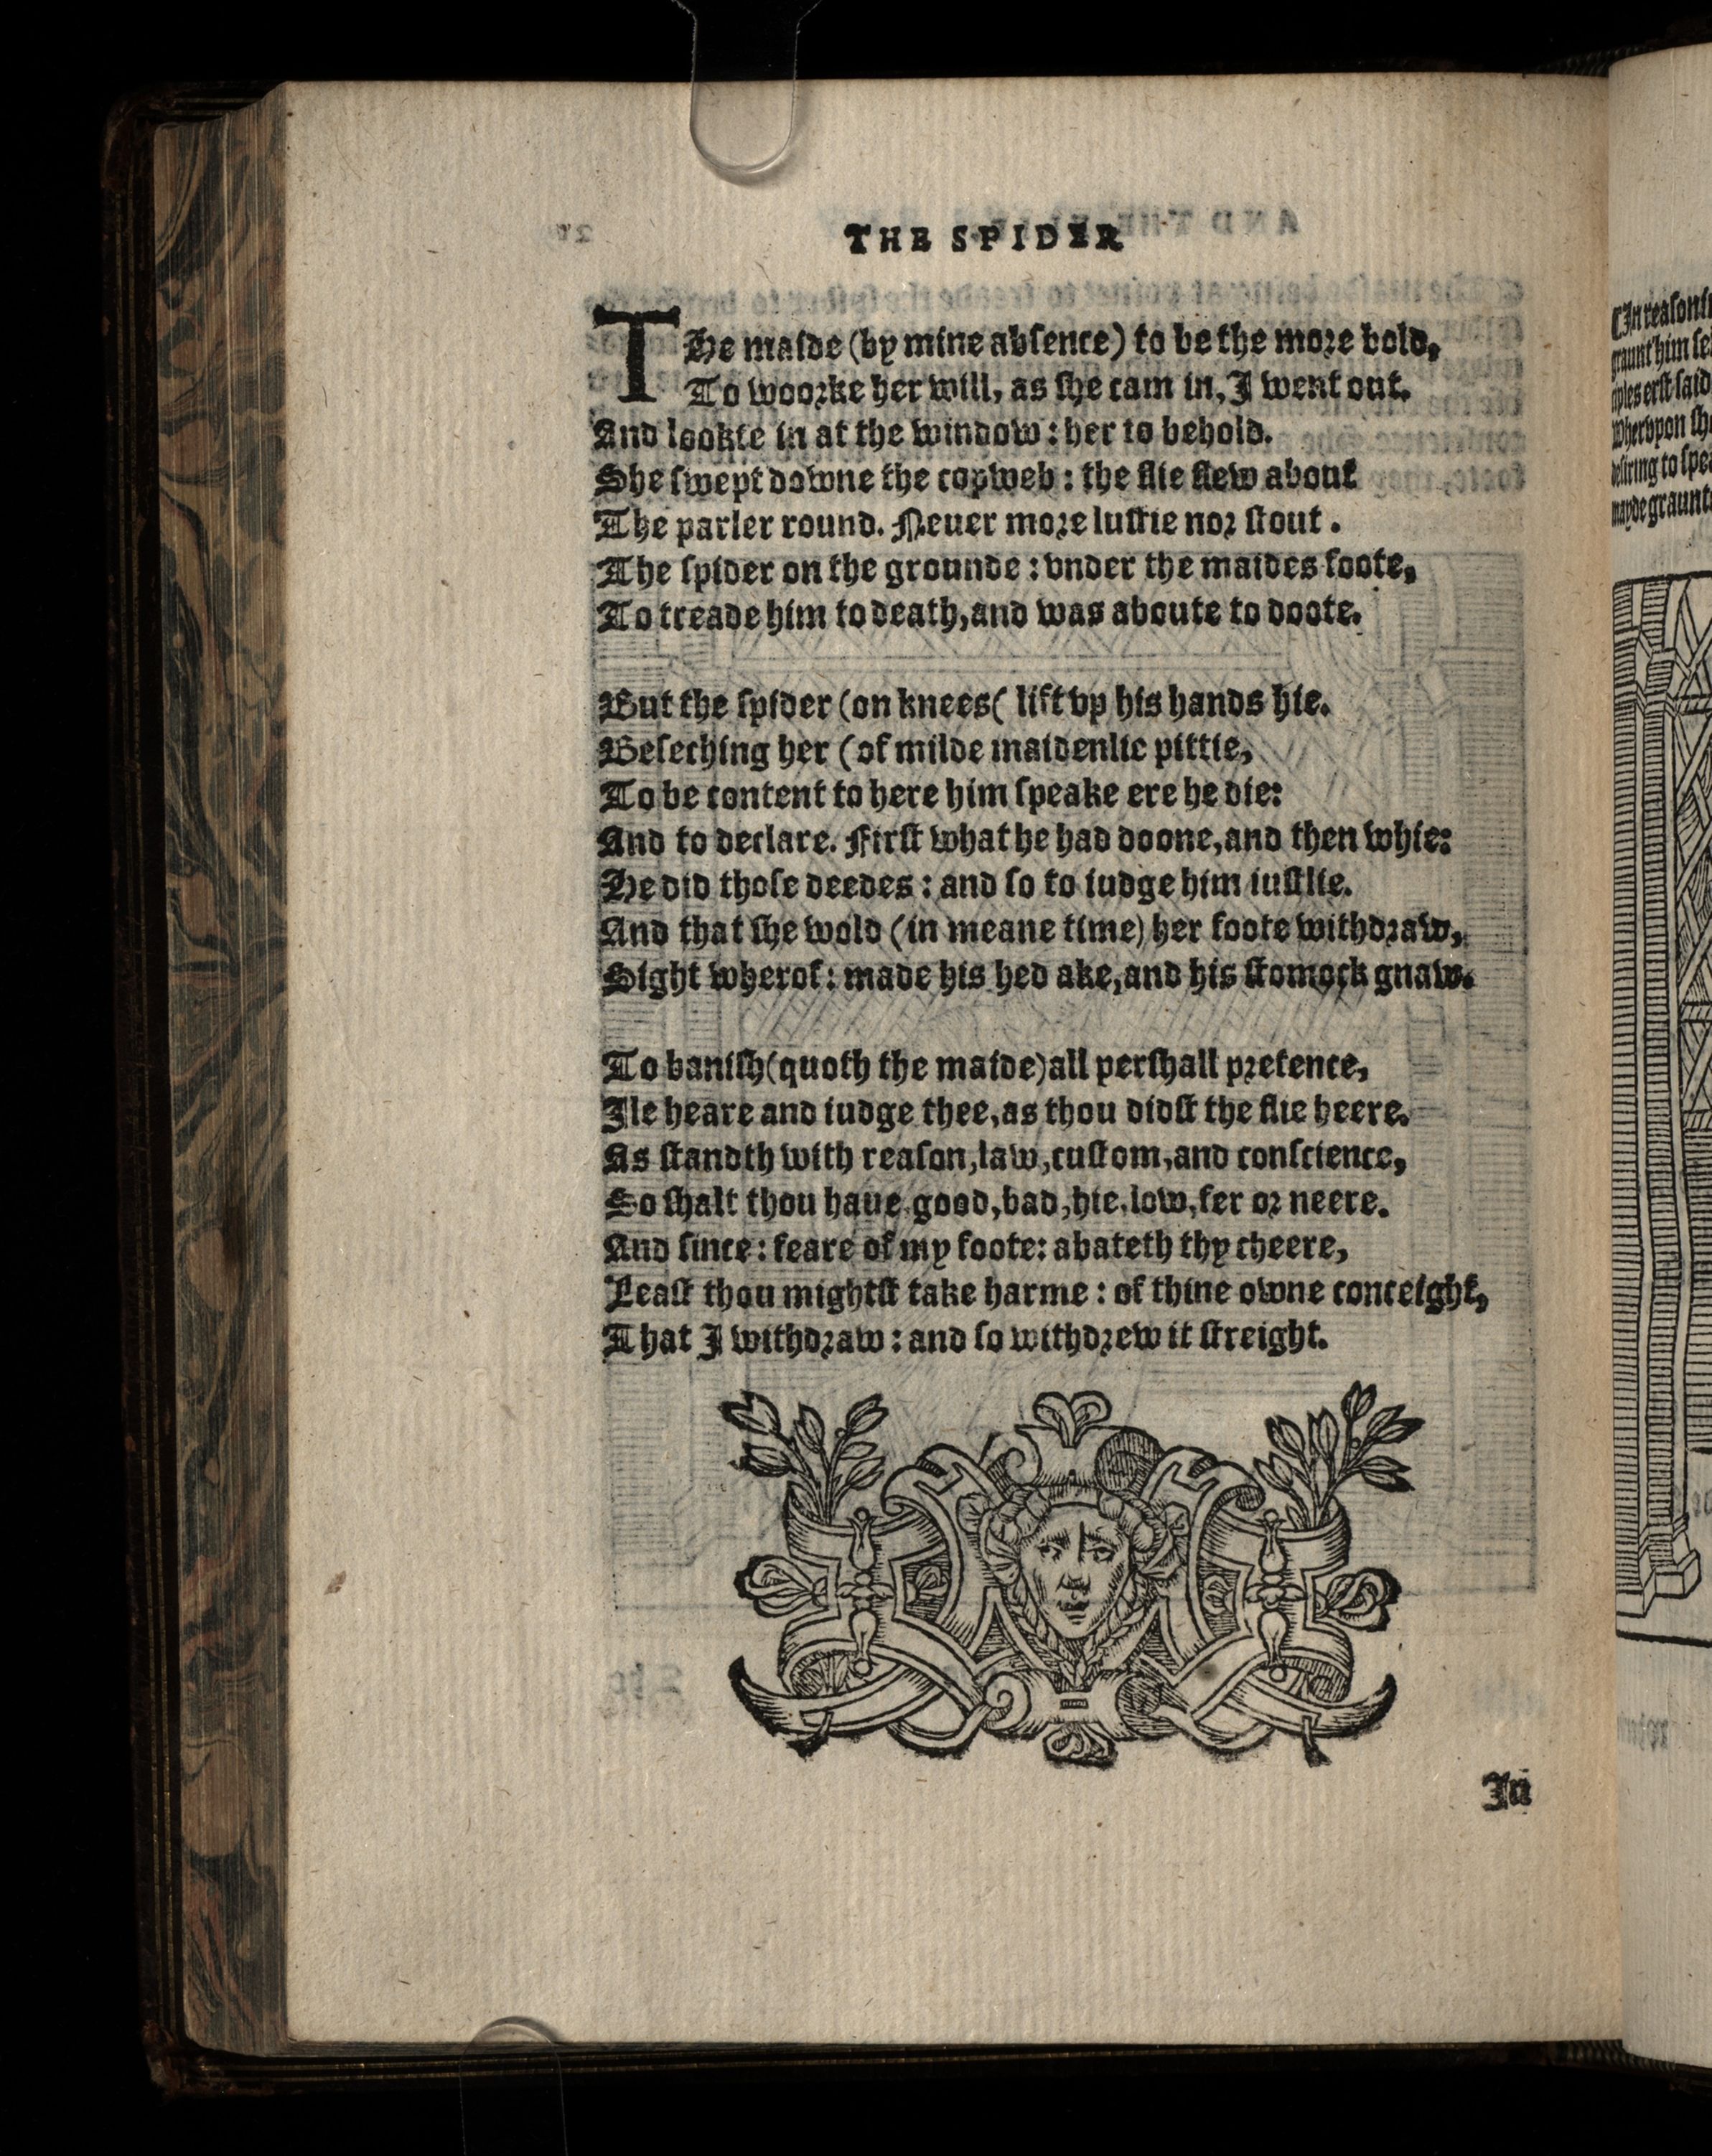 THE SPIDER
THe maide (by mine absence) to be the more bold,
To woorke her will, as she cam in, I went out.
And lookte in at the window : her to behold.
She swept downe the copweb : the flie flew about
The parler round. Neuer more lustie nor stout .
The spider on the grounde : vnder the maides foote,
To treade him to death, and was aboute to doote.
But the spider (on knees( lift vp his hands hie.
Beseching her (of milde maidenlie pittie,
To be content to here him speake ere he die:
And to declare. First what he had doone, and then whie:
He did those deedes : and so to iudge him iustlie.
And that she wold (in meane time) her foote withdraw,
Sight wherof : made his hed ake, and his stomock gnaw.
To banish (quoth the maide) all pershall pretence,
Ile heare and iudge thee, as thou didst the flie heere.
As standth with reason, law, custom, and conscience,
So shalt thou haue, good, bad, hie, low, fer or neere.
And since : feare of my foote : abateth thy cheere,
Least thou mightst take harme : of thine owne conceight,
That I withdraw : and so withdrew it streight.
In